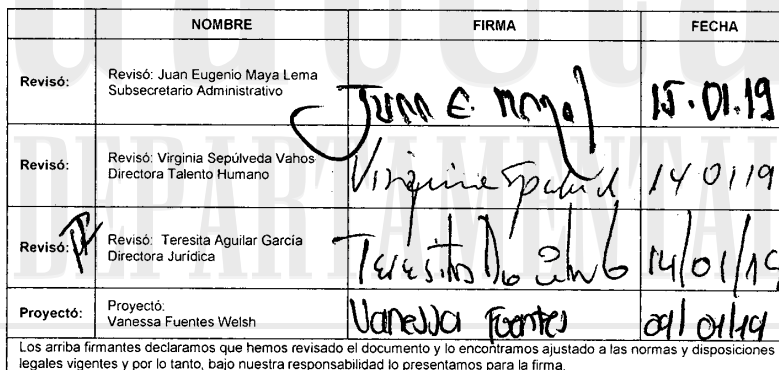 NOMBRE FIRMA FECHA
Revisó: Revisó: Juan Eugenio Maya Lema
Subsecretario Administrativo
Juan E. Maya L 15.01.19
Revisó: Revisó: Virginia Sepúlveda Vahos
Directora Talento Humano
Virginia 14 01 19
Revisó: Revisó: Teresita Aguilar García
Directora Jurídica
Teresita 14/01/19
Proyectó: Proyectó:
Vanessa Fuentes Welsh
Vanessa Fuentes 09/01/19
Los arriba firmantes declaramos que hemos revisado el documento y lo encontramos ajustado a las normas y disposiciones
legales vigentes y por lo tanto, bajo nuestra responsabilidad lo presentamos para la firma.
DEPARTAMENTAL